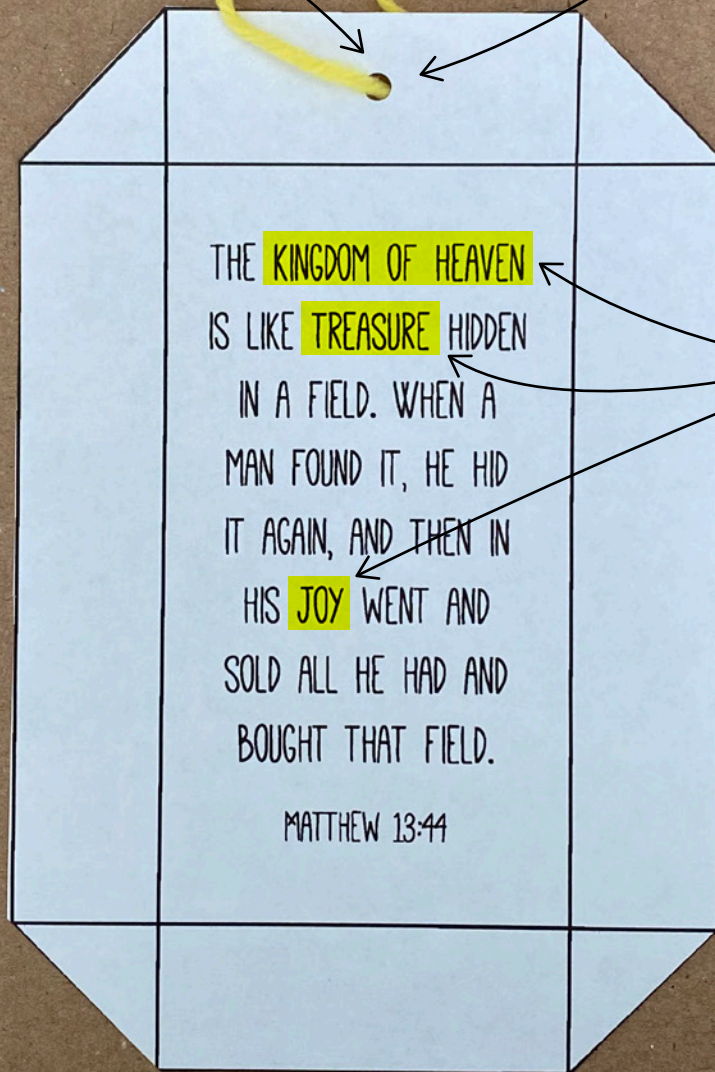 THE KINGDOM OF HEAVEN
IS LIKE TREASURE HIDDEN
IN A FIELD. WHEN A
MAN FOUND IT, HE HID
IT AGAIN, AND THEN IN
HIS JOY WENT AND
SOLD ALL HE HAD AND
BOUGHT THAT FIELD.
MATTHEW 13:44